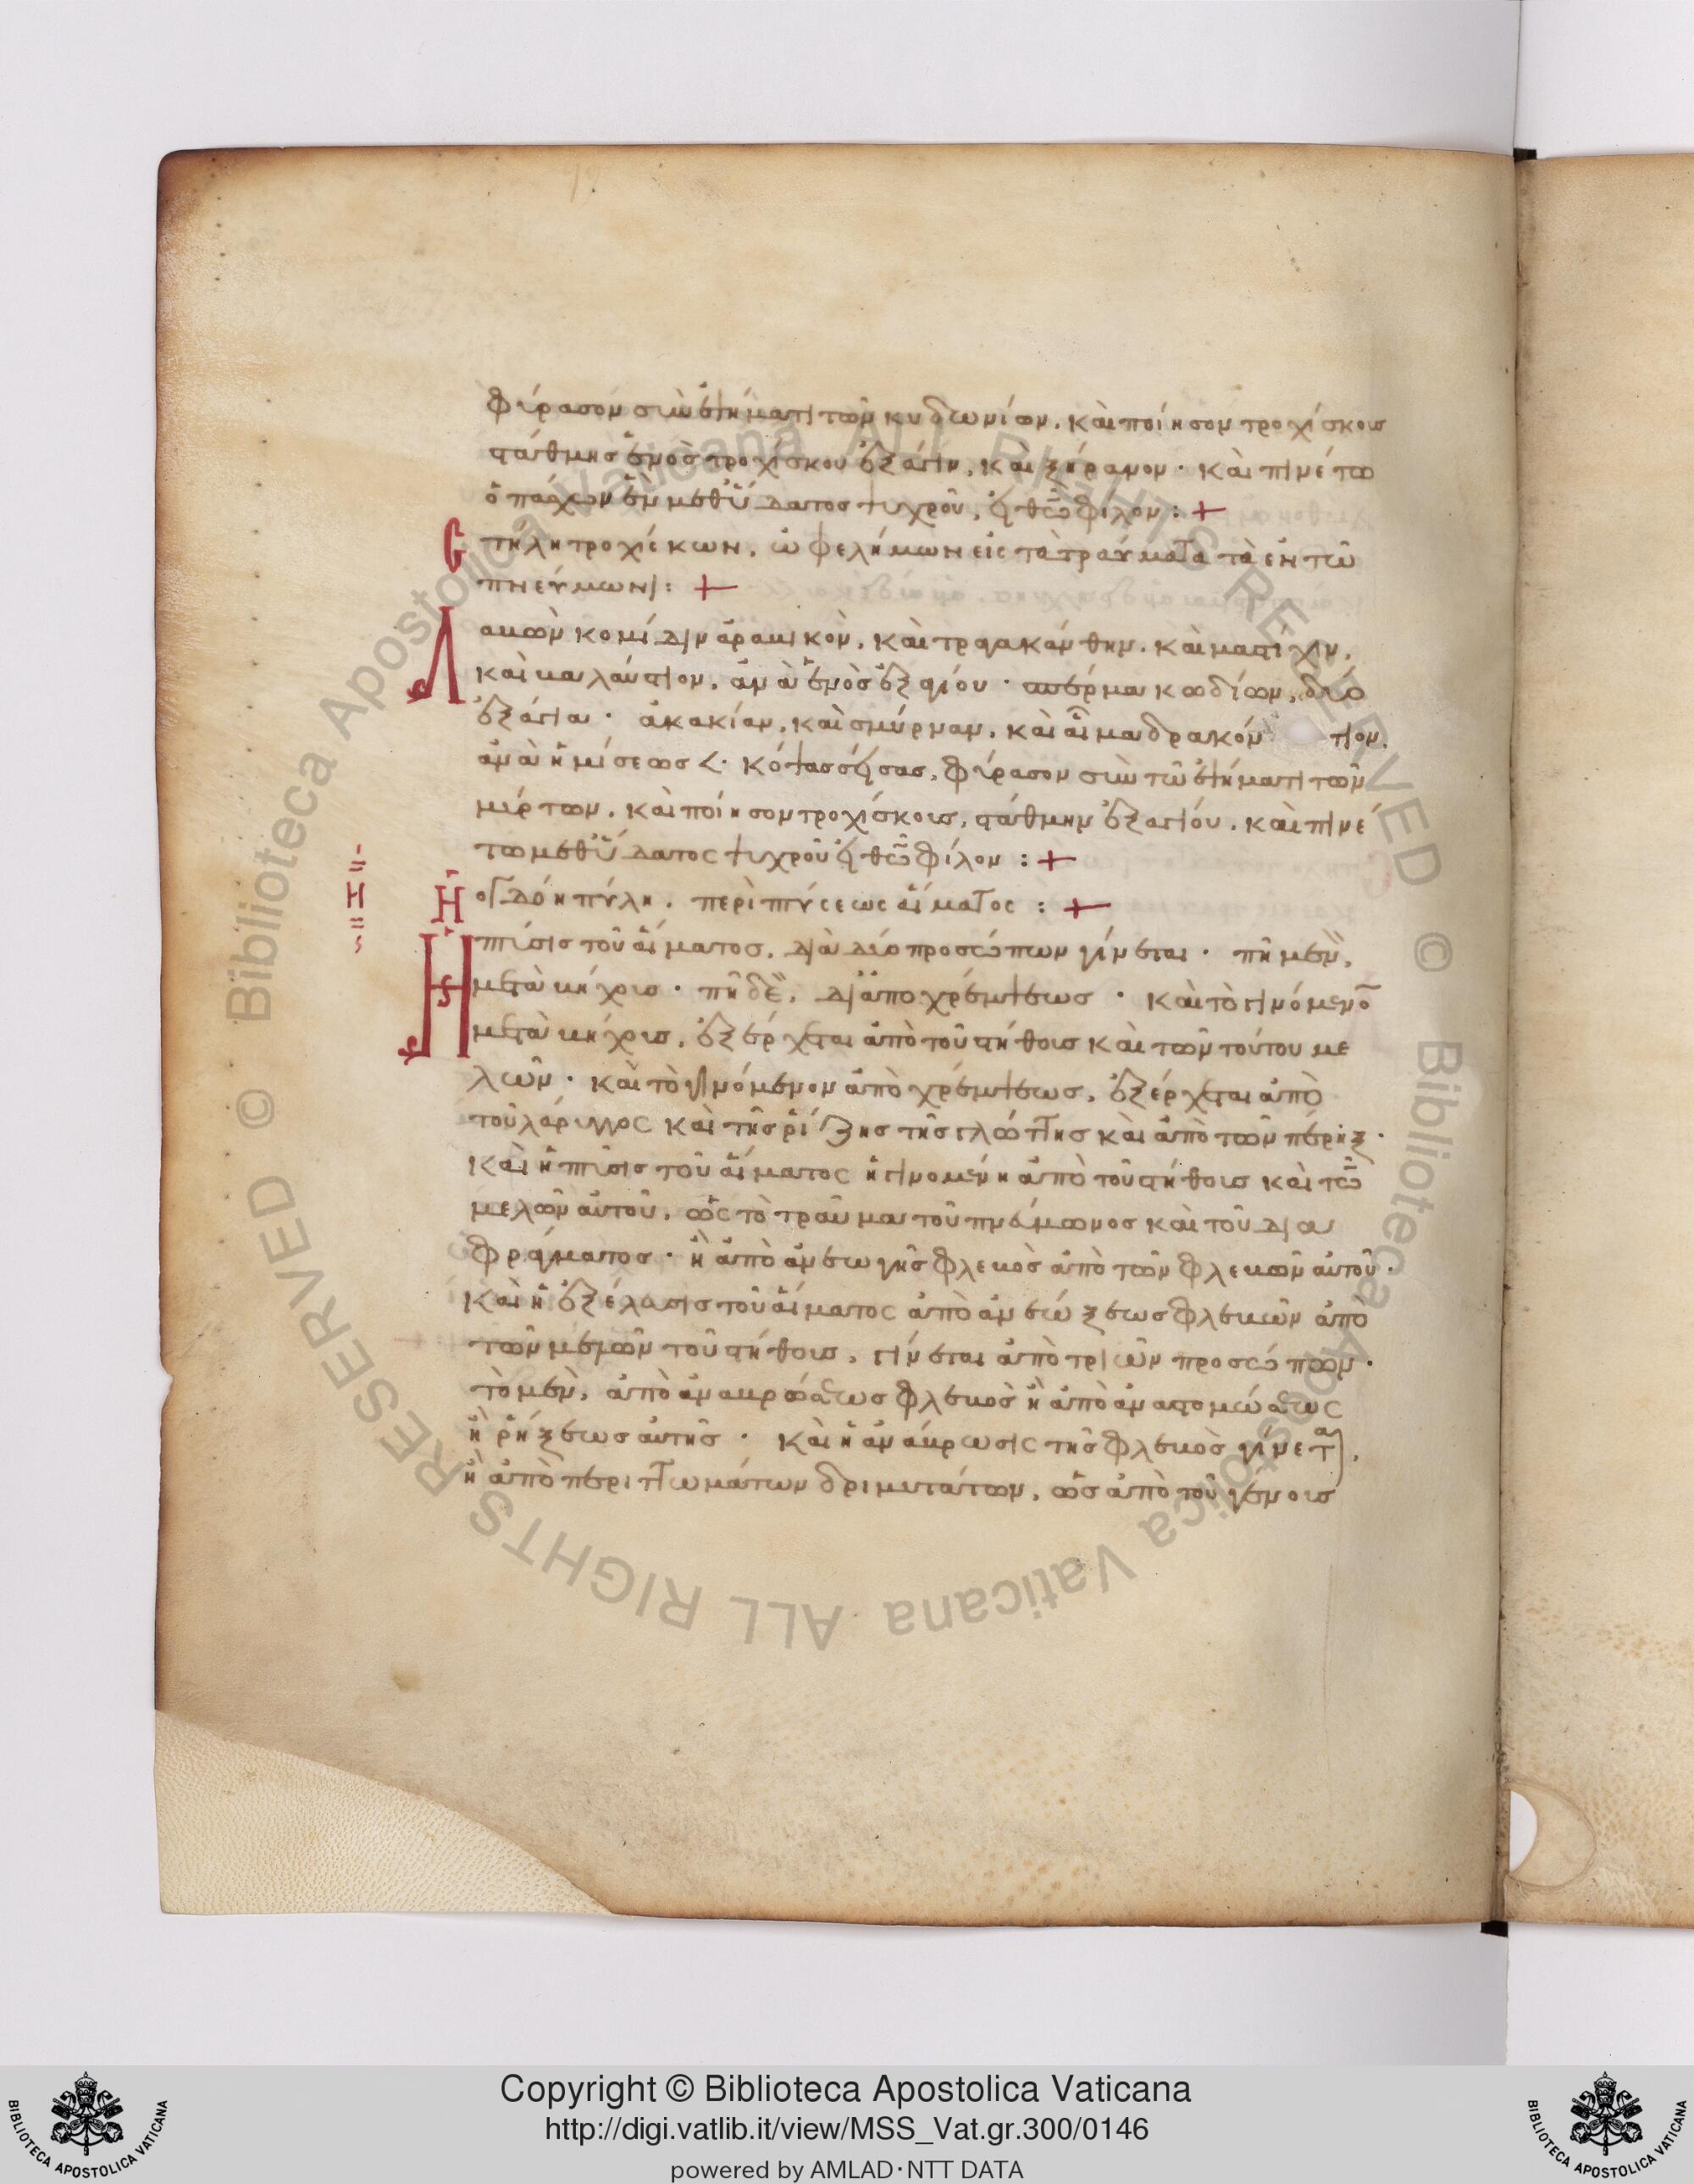 φύρασον σὺν ἑψήματι τῶν κυδωνίων. καὶ ποίησον τροχίσκους
στάθμης ἑνὸς τροχίσκου ἐξάγιν, καὶ ξήρανον· καὶ πινέτω
ὁ πάσχων ἓν μεθ' ὕδατος ψυχροῦ, εἰ θεῶ φίλον: +
Στήλη τροχίσκων, ὠφελήμων εἰς τὰ τραύματα τὰ ἐν τῶ
πνεύμωνι: +
Λαβὼν κομίδιν ἀραβικὸν, καὶ τραγακάνθην. καὶ μαστίχιν,
καὶ βαλαύστιον, ἀνὰ ἑνὸς ἐξαγίου· σπέρμα κωδίων, δύο
ἐξάγια· ἀκακίαν, καὶ σμύρναν, καὶ αἷμα δρακόντιον.
ἀνὰ ἡμίσεως 𐅶· κόψας σήσας, φύρασον σὺν τῶ ἑψήματι τῶν
μύρτων. καὶ ποίησον τροχίσκους, στάθμην ἐξαγίου. καὶ πινέ
τω μεθ' ὕδατος ψυχροῦ εἰ θεῶ φίλον: +
Η
Η ὀγδόη πύλη. περὶ πτύσεως αἵματος: +
Ἡ πτύσις τοῦ αἵματος, διὰ δύο προσώπων γίνεται· πῆ μὲν,
μετὰ βήχους· πῆ δὲ, δι' ἀποχρέμψεως· καὶ τὸ γινόμενον
μετὰ βήχους, ἐξέρχεται ἀπὸ τοῦ στήθους καὶ τῶν τούτου με
λῶν· καὶ τὸ γινόμενον ἀπὸ χρέμψεως, ἐξέρχεται ἀπὸ
τοῦ λάρυγγος καὶ τῆς ῥίζης τῆς γλώττης καὶ ἀπὸ τῶν πέριξ·
καὶ ἡ πτύσις τοῦ αἵματος ἡ γινομένη ἀπὸ τοῦ στήθους καὶ τῶν
μελῶν αὐτοῦ, ὡς τὸ τραῦμα τοῦ πνεύμωνος καὶ τοῦ δια
φράγματος· ἢ ἀπὸ ἀνεωγῆς φλεβὸς ἀπὸ τῶν φλεβῶν αὐτοῦ·
καὶ ἡ ἐξέλασις τοῦ αἵματος ἀπὸ ἀνεώξεως φλεβῶν ἀπὸ
τῶν μελῶν τοῦ στήθους, γίνεται ἀπὸ τριῶν προσώπων·
τὸ μὲν, ἀπὸ ἀναβρώσεως φλεβὸς ἢ ἀπὸ ἀναστομώσεως
ἢ ῥήξεως αὐτῆς· καὶ ἡ ἀνάβρωσις τῆς φλεβὸς γίνεται,
ἢ ἀπὸ περιττωμάτων δριμυτάτων, ὡς ἀπὸ τοῦ γένους
Copyright © Biblioteca Apostolica Vaticana
http://digi.vatlib.it/view/MSS_Vat.gr.300/0146
powered by AMLAD·NTT DATA
© Biblioteca Apostolica Vaticana ALL RIGHTS RESERVED
© Biblioteca Apostolica Vaticana ALL RIGHTS RESERVED
BIBLIOTECA APOSTOLICA VATICANA
BIBLIOTECA APOSTOLICA VATICANA